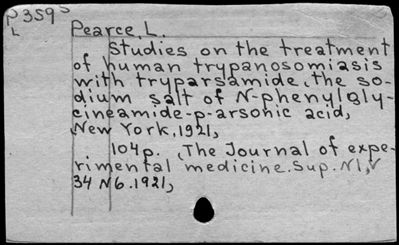 P359s
L
Pearce, L.
Studies on the treatment
of human trypanosomiasis
with tryparsamide, the so-
dium salt of N-phenylgly-
cineamide-p-arsonic acid,
New York, 1921,
104p. (The Journal of expe-
rimental medicine. Sup. N1, v
34 N6. 1921,